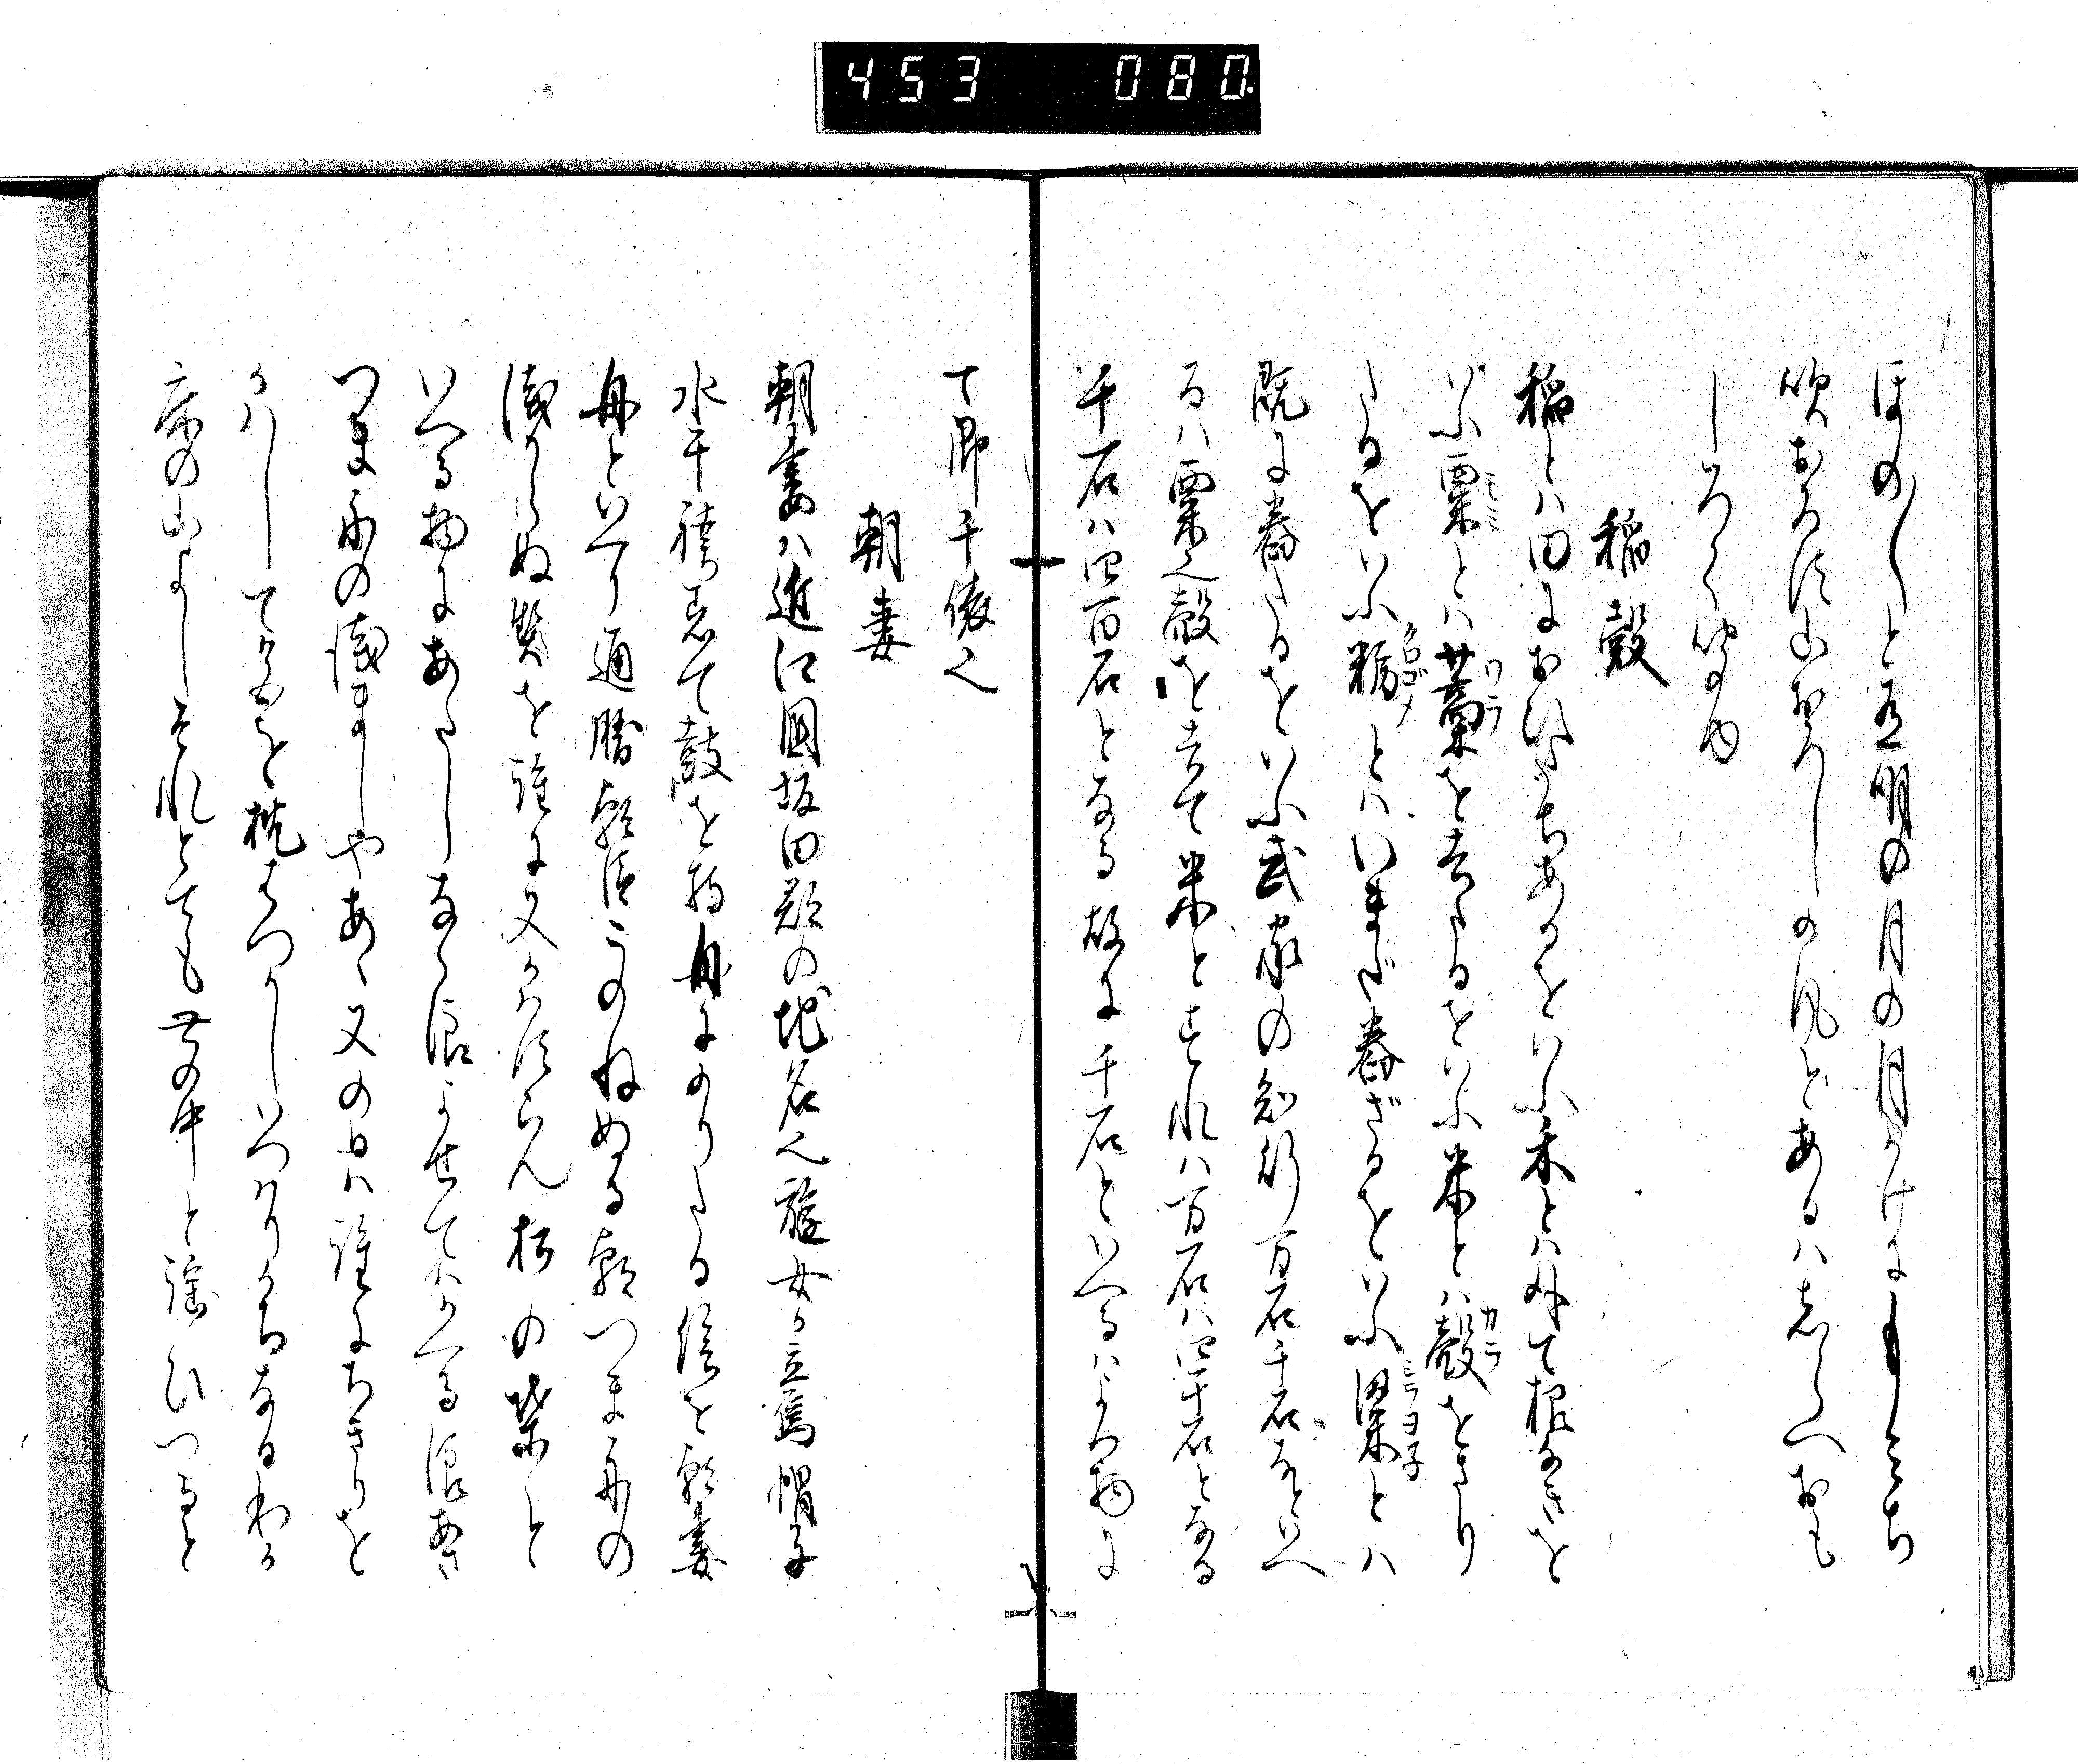 453 080.
ほの〳〵と有明の月の月かけにもみち
吹おろす山おろしの風とあるハきらへおも
しろく侍る也
稲穀
稲とハ田におひたちあるをいふ禾とハ外て根なきを
いふ粟とハ藁を去たるをいふ米とハ穀をさり
モミ ワラ カラ
たるをいふ糲とハいまだ舂ざるをいふ粱とハ
クロゴメ ミヨ子
既に舂たるをいふ武家の知行万石千石なといへ
るハ粟之穀を去て米とすれハ万石ハ四千石となる
千石ハ四百石となる故に千石といへるハよき物に
て即千俵也
朝妻
朝妻ハ近江国坂田郡の地名也遊女の立烏帽子
水干袴着て鼓を持舟にのりたる像を朝妻
舟といへり通勝朝臣このねぬる朝つま舟の
浅からぬ契を誰に又かハすらん柏の葉と
いへる物にあたしあた浪よせてハかへる浪あさ
つま舟の浅ましやあゝ又の日ハ誰にちきりを
かハして色を枕はつかしいつハりかちなるわか
床の山よしそれとても世の中と謡ひつると